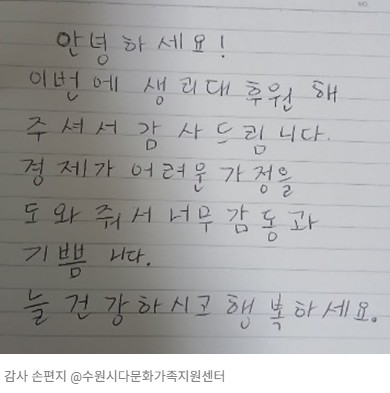 안녕하세요!
이번에 생리대 후원해
주셔서 감사드립니다.
경제가 어려운 가정을
도와줘서 너무 감동과
기쁨니다.
늘 건강하시고 행복하세요.
감사 손편지 @수원시다문화가족지원센터